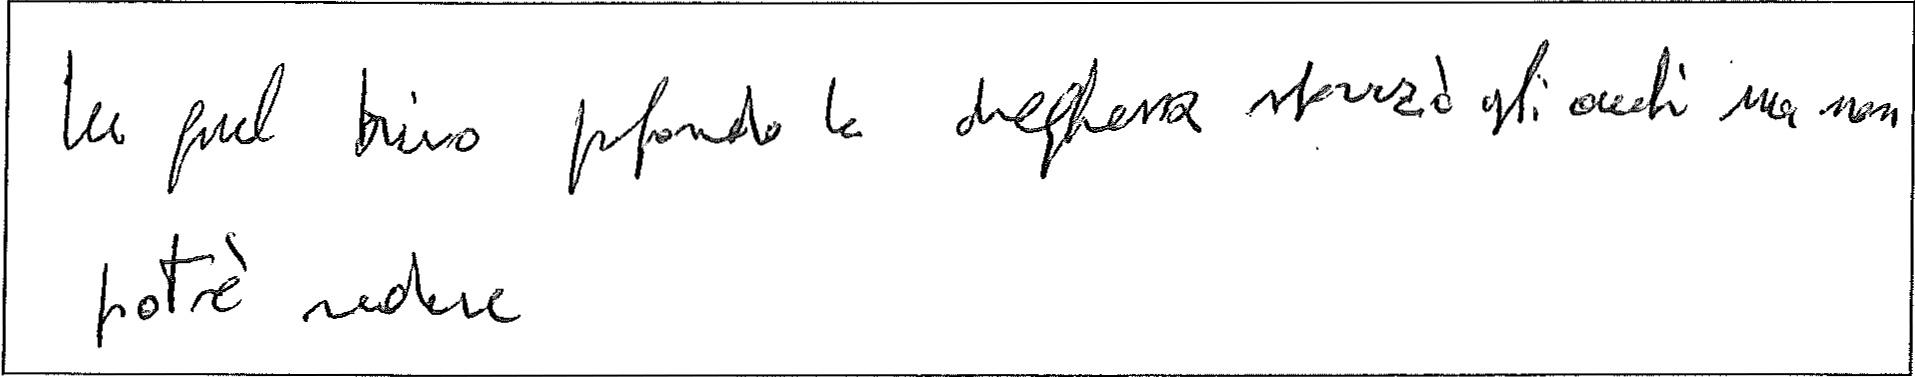 In quel buio pfondo la dreghessa sforzò gli occhi ma non
potrè vedere